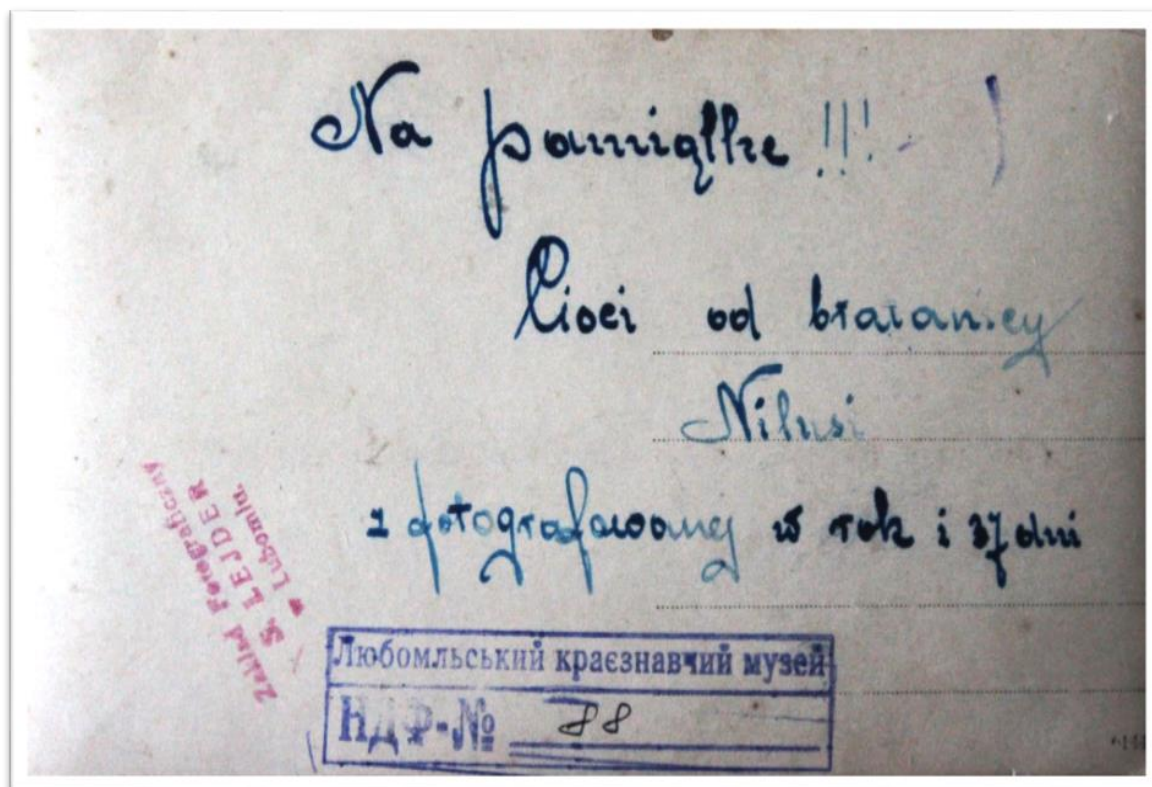 Na pamiątkę !!!
Cioci od bratanicy
Nilusi
z fotografowany w rok i 37 dni
Zakład Fotograficzny
S. LEJDER
w Lubomlu.
Любомльський краєзнавчий музей
НДФ-№ 88